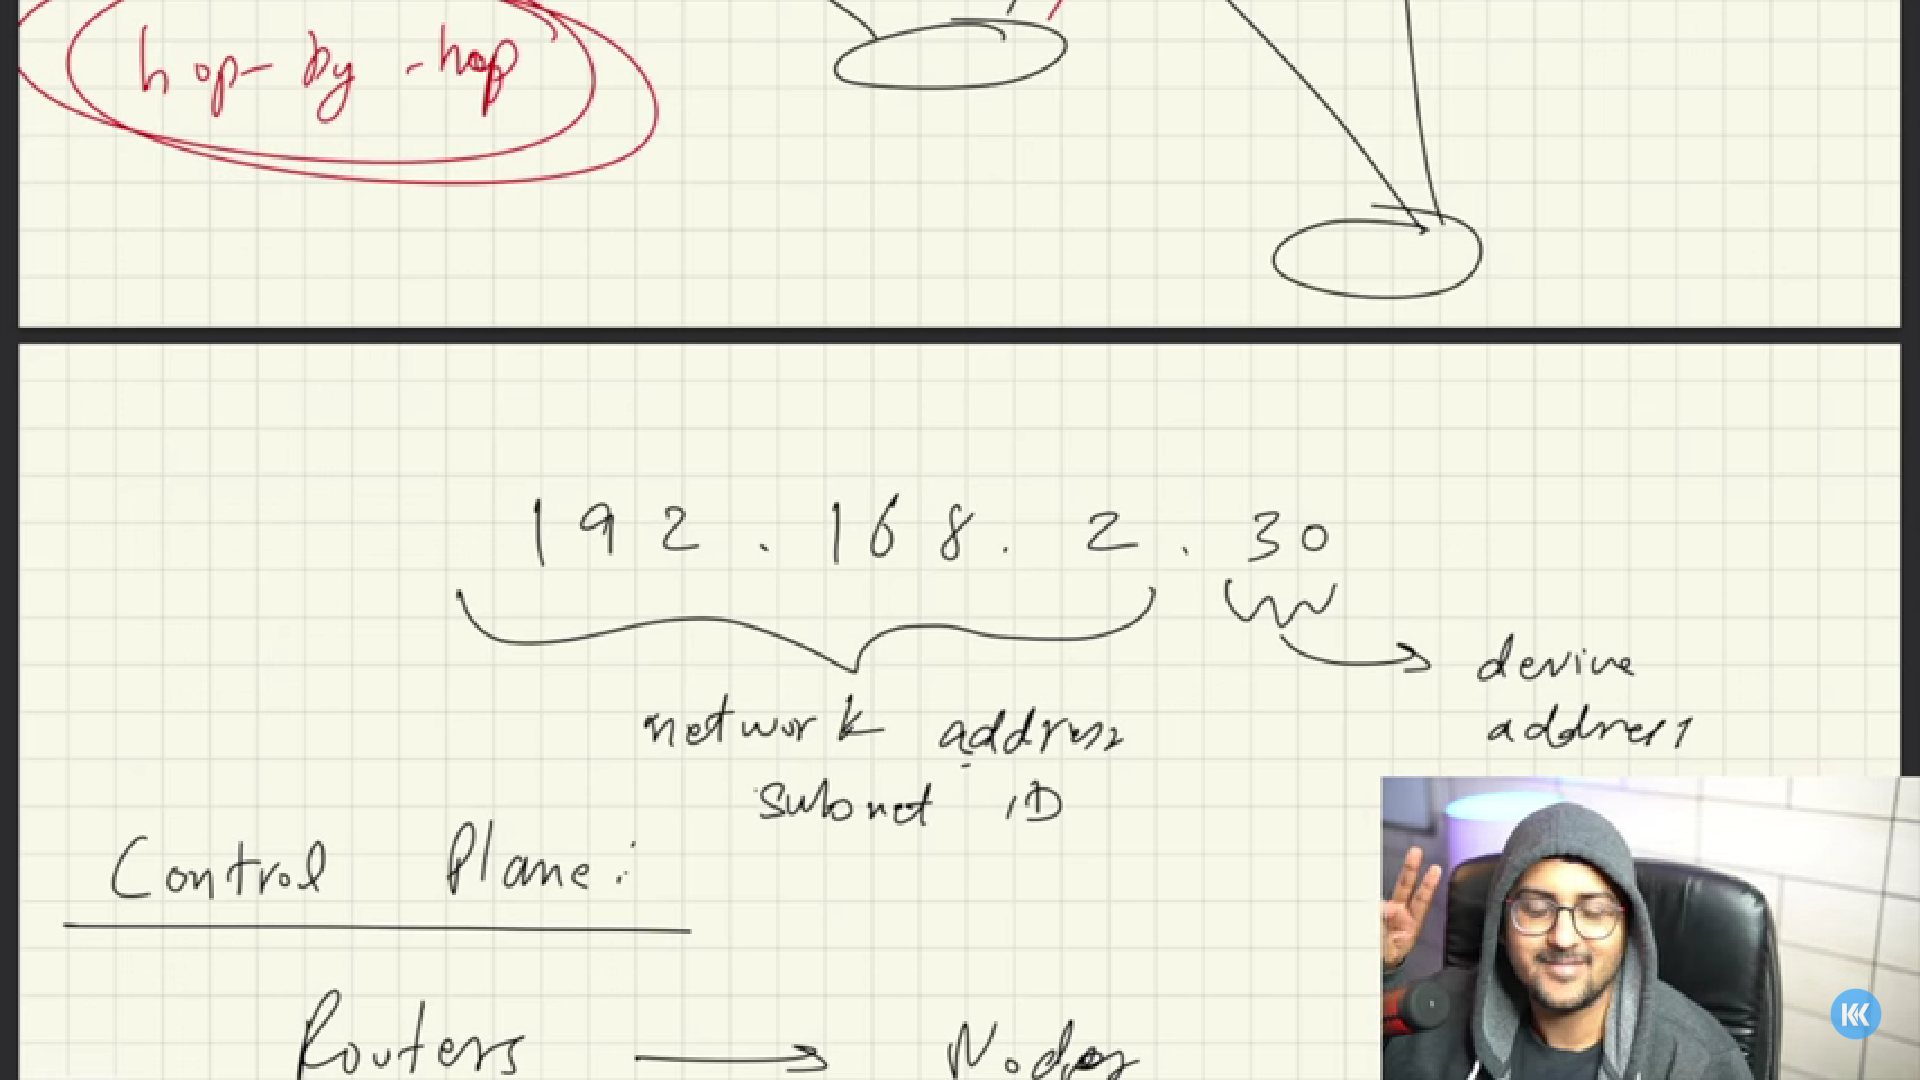 hop-by-hop
192.168.2.30
network address
subnet ID
device
address
Control Plane:
Routers → Nodes